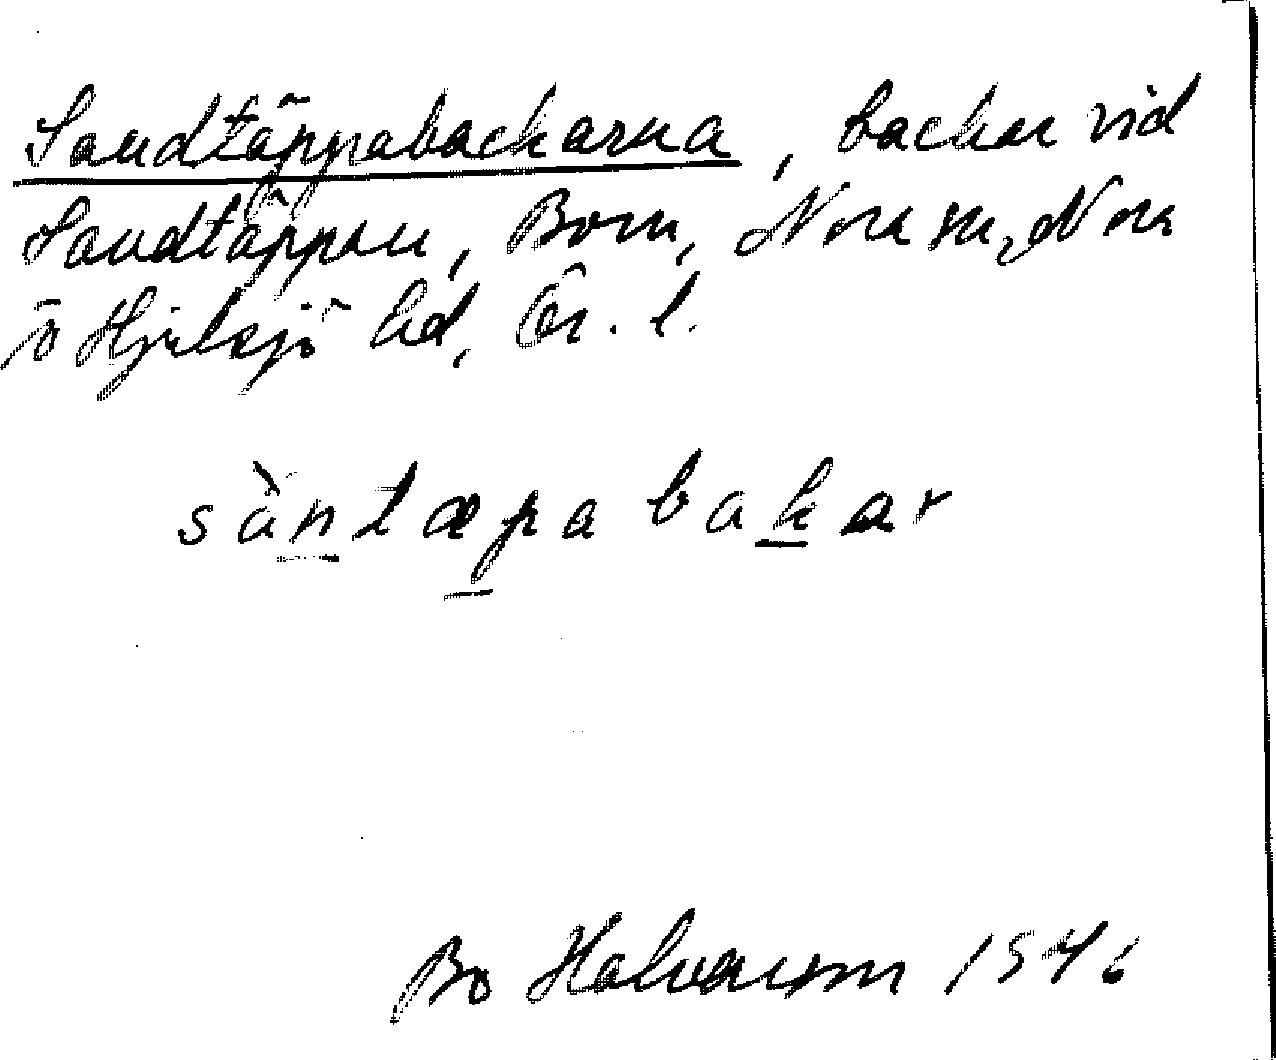 Sandtäppabackarna, backar vid
Sandtäppan, Born, Nora sn, Nora
o Hjulsjö hd, Ör. l.
sàntæpa bakar
Bo Halvarson 1946